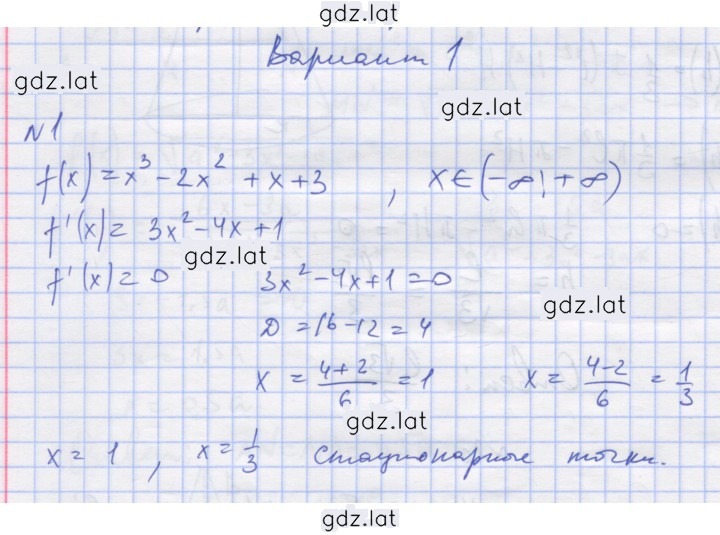 gdz.lat
Вариант 1
gdz.lat
gdz.lat
N1
f(x) = x³ - 2x² + x + 3 , x ∈ (-∞; +∞)
f'(x) = 3x² - 4x + 1
gdz.lat
f'(x) = 0 3x² - 4x + 1 = 0
gdz.lat
D = 16 - 12 = 4
x = (4+2)/6 = 1 x = (4-2)/6 = 1/3
gdz.lat
x = 1 , x = 1/3 стационарные точки.
gdz.lat